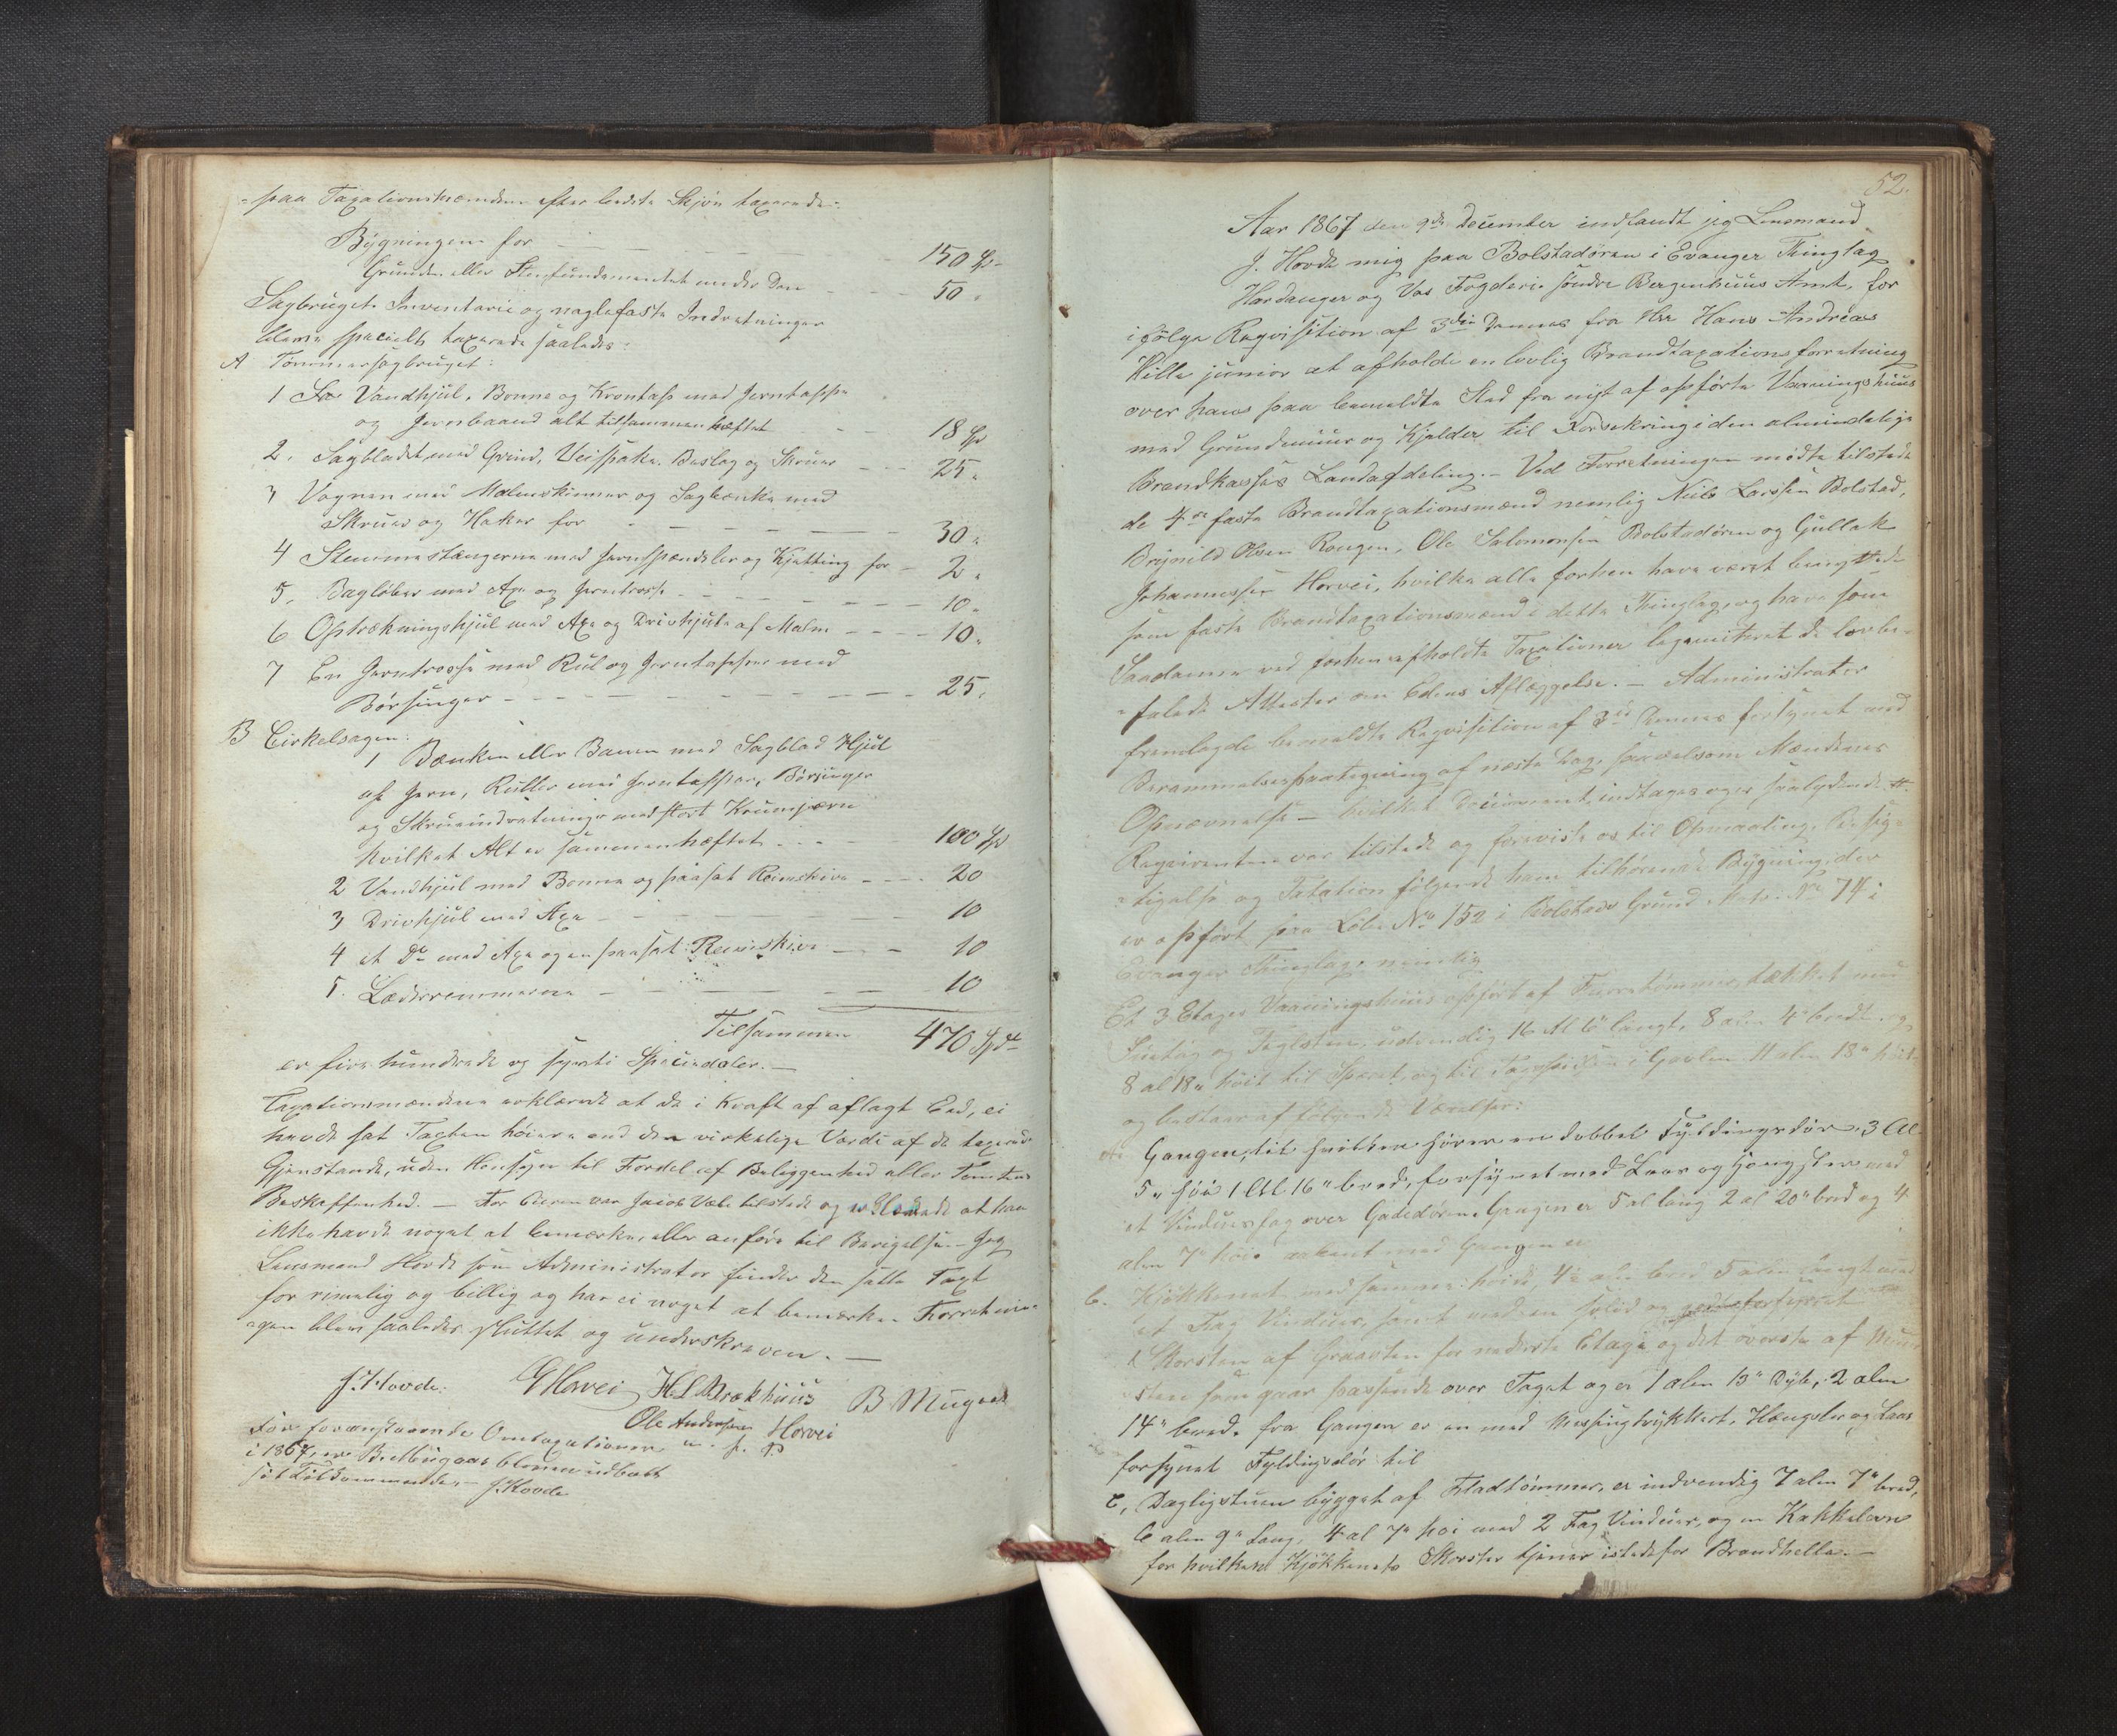 paa Taxationsmændene efter bedste Skjøn taxerede:
Bygningen for 150 Sp
Grunden eller Steenfundamentet under Den 50 "
Sagbrugets Inventarie og naglefaste Indretninger
bleve specielt taxerede saaledes:
A Tømmersagbruget:
1 Vandhjul, Bonne og Krontap med Jerntappe
og Jernbaand alt tilsammenhæftet 18 Sp
2. Sagbladet med Grind, Veispake, Beslag og Skruer 25 "
3 Vognen med Malmskinner og Sagbænke med
Skruer og Haker for 30 "
4 Stemmestængerne med Jernspændsler og Kjætting for 2 "
5. Bagløber med Axe og Jerntrosse 10 "
6 Optrækningshjul med Axe og Drivhjul af Malm 10 "
7 En Jerntrosse med Rul og Jerntapper med
Børsinger 25 "
B Cirkelsagen:
1 Bænken eller Banen med Sagblad Hjul
af Jern, Ruller med Jerntapper, Børsinger
og Skrueindretninger med stort Krumjern
hvilket Alt er sammenhæftet 100 Sp
2 Vandhjul med Bonne og paasat Reimskive 20
3 Drivhjul med Axe 10
4 et Do med Axe og en paasat Reimskive 10
5. Læderremmerne 10
Tilsammen 470 Spd
er fire hundrede og sytti Speciedaler.—
Taxationsmændene erklærede at de i Kraft af aflagt Eed, ei
havde sat Taxten høiere end den virkelige Værdi af de taxerede
Gjenstande, uden Hensyn til Fordel af Beliggenhed eller Tomtens
Beskaffenhed.— For Eieren var Jacob tilstede og erklærede at han
ikke havde noget at bemærke, eller anføre til Berigelse.— Jeg
Lensmand Hovde som Administrator finder den satte Taxt
for rimelig og billig og har ei noget at bemærke. Forretnin-
gen blev saaledes sluttet og underskreven.—
J. Hovde. G Horvei H L Brækhuus B. Mugaas
Ole Andersen Horvei
For foranstaaende Omtaxationer m. f. P.
i 1867, er B. Mugaas bleven udbetalt
sit Tilkommende.— J. Hovde
52.
Aar 1867 den 9de December indfandt jeg Lensmand
J. Hovde mig paa Bolstadøren i Evanger Thinglag
Hardanger og Vos Fogderi søndre Bergenhuus Amt, for
ifølge Reqvisition af 3die Dennes fra Hr. Hans Andreas
Hille junior at afholde en lovlig Brandtaxationsforretning
over hans paa bemeldte Sted fra nyt af opførte Vaaningshuus
med Grundmuur og Kjelder til Forsikring i den almindelige
Brandkasses Landafdeling.— Ved Forretningen mødte tilstede
de 4re faste Brandtaxationsmænd nemlig Niels Larssen Bolstad,
Brynild Olsen Rongen, Ole Salomonsen Bolstadøren og Gullak
Johannessen Horvei, hvilke alle forhen have været benyttede
som faste Brandtaxationsmænd i dette Thinglag, og have som
Saadanne ved forhen afholdte Taxationer legemiteret de lovbe-
falede Attester om Edens Aflæggelse.— Administrator
fremlagde bemeldte Reqvisition af 3die Dennes forsynet med
Berammelsespaategning af næste Dag, saavelsom Mændenes
Opnævnelse — hvilket Document indtages og er saalydende #.
Reqvirenten var tilstede og foreviste os til Opmaaling, Besig-
tigelse og Taxation følgende ham tilhørende Bygning, der
er opført paa Løbe No 152 i Bolstads Grund Matr. No 74 i
Evanger Thinglag, nemlig
Et 3 Etages Vaaningshuus opført af Furretømmer, tækket med
Sutag og Teglsteen, udvendig 16 Al 6" langt, 8 alen 4" bredt og
8 al 18" høit til Sparet, og til Tagspidsen i Gavlen 11 alen 18" høit
og bestaar af følgende Værelser:
A. Gangen, til hvilken hører en dobbel Fyldingsdør, 3 Al
5" høi 1 Al 16" bred, forsynet med Laas og Hængsler med
et Vinduesfag over Gadedøren. Gangen er 5 al lang 2 al 20" bred og 4
alen 7" høi. aabent med Gangen er
B. Kjøkkenet med samme høide, 4½ alen bred 5 alen langt med
et Fag Vinduer, samt med en solid og
Skorsten af Graasten for nederste Etage og det øverste af Muur-
sten som gaar passende over Taget og er 1 alen 13" Dyb, 2 alen
14" bred, fra Gangen er en med Messingtrykkert, Hængsler og Laas
forsynet Fyldigsdør til
C, Dagligstuen bygget af Fladtømmer, er indvendig 7 alen 7" bred,
6 alen 9" lang, 4 al 7" høi med 2 Fag Vinduer, og en Kakkelovn
for hvilken Kjøkkenets Skorsten tjener istedefor Brandhelle.—